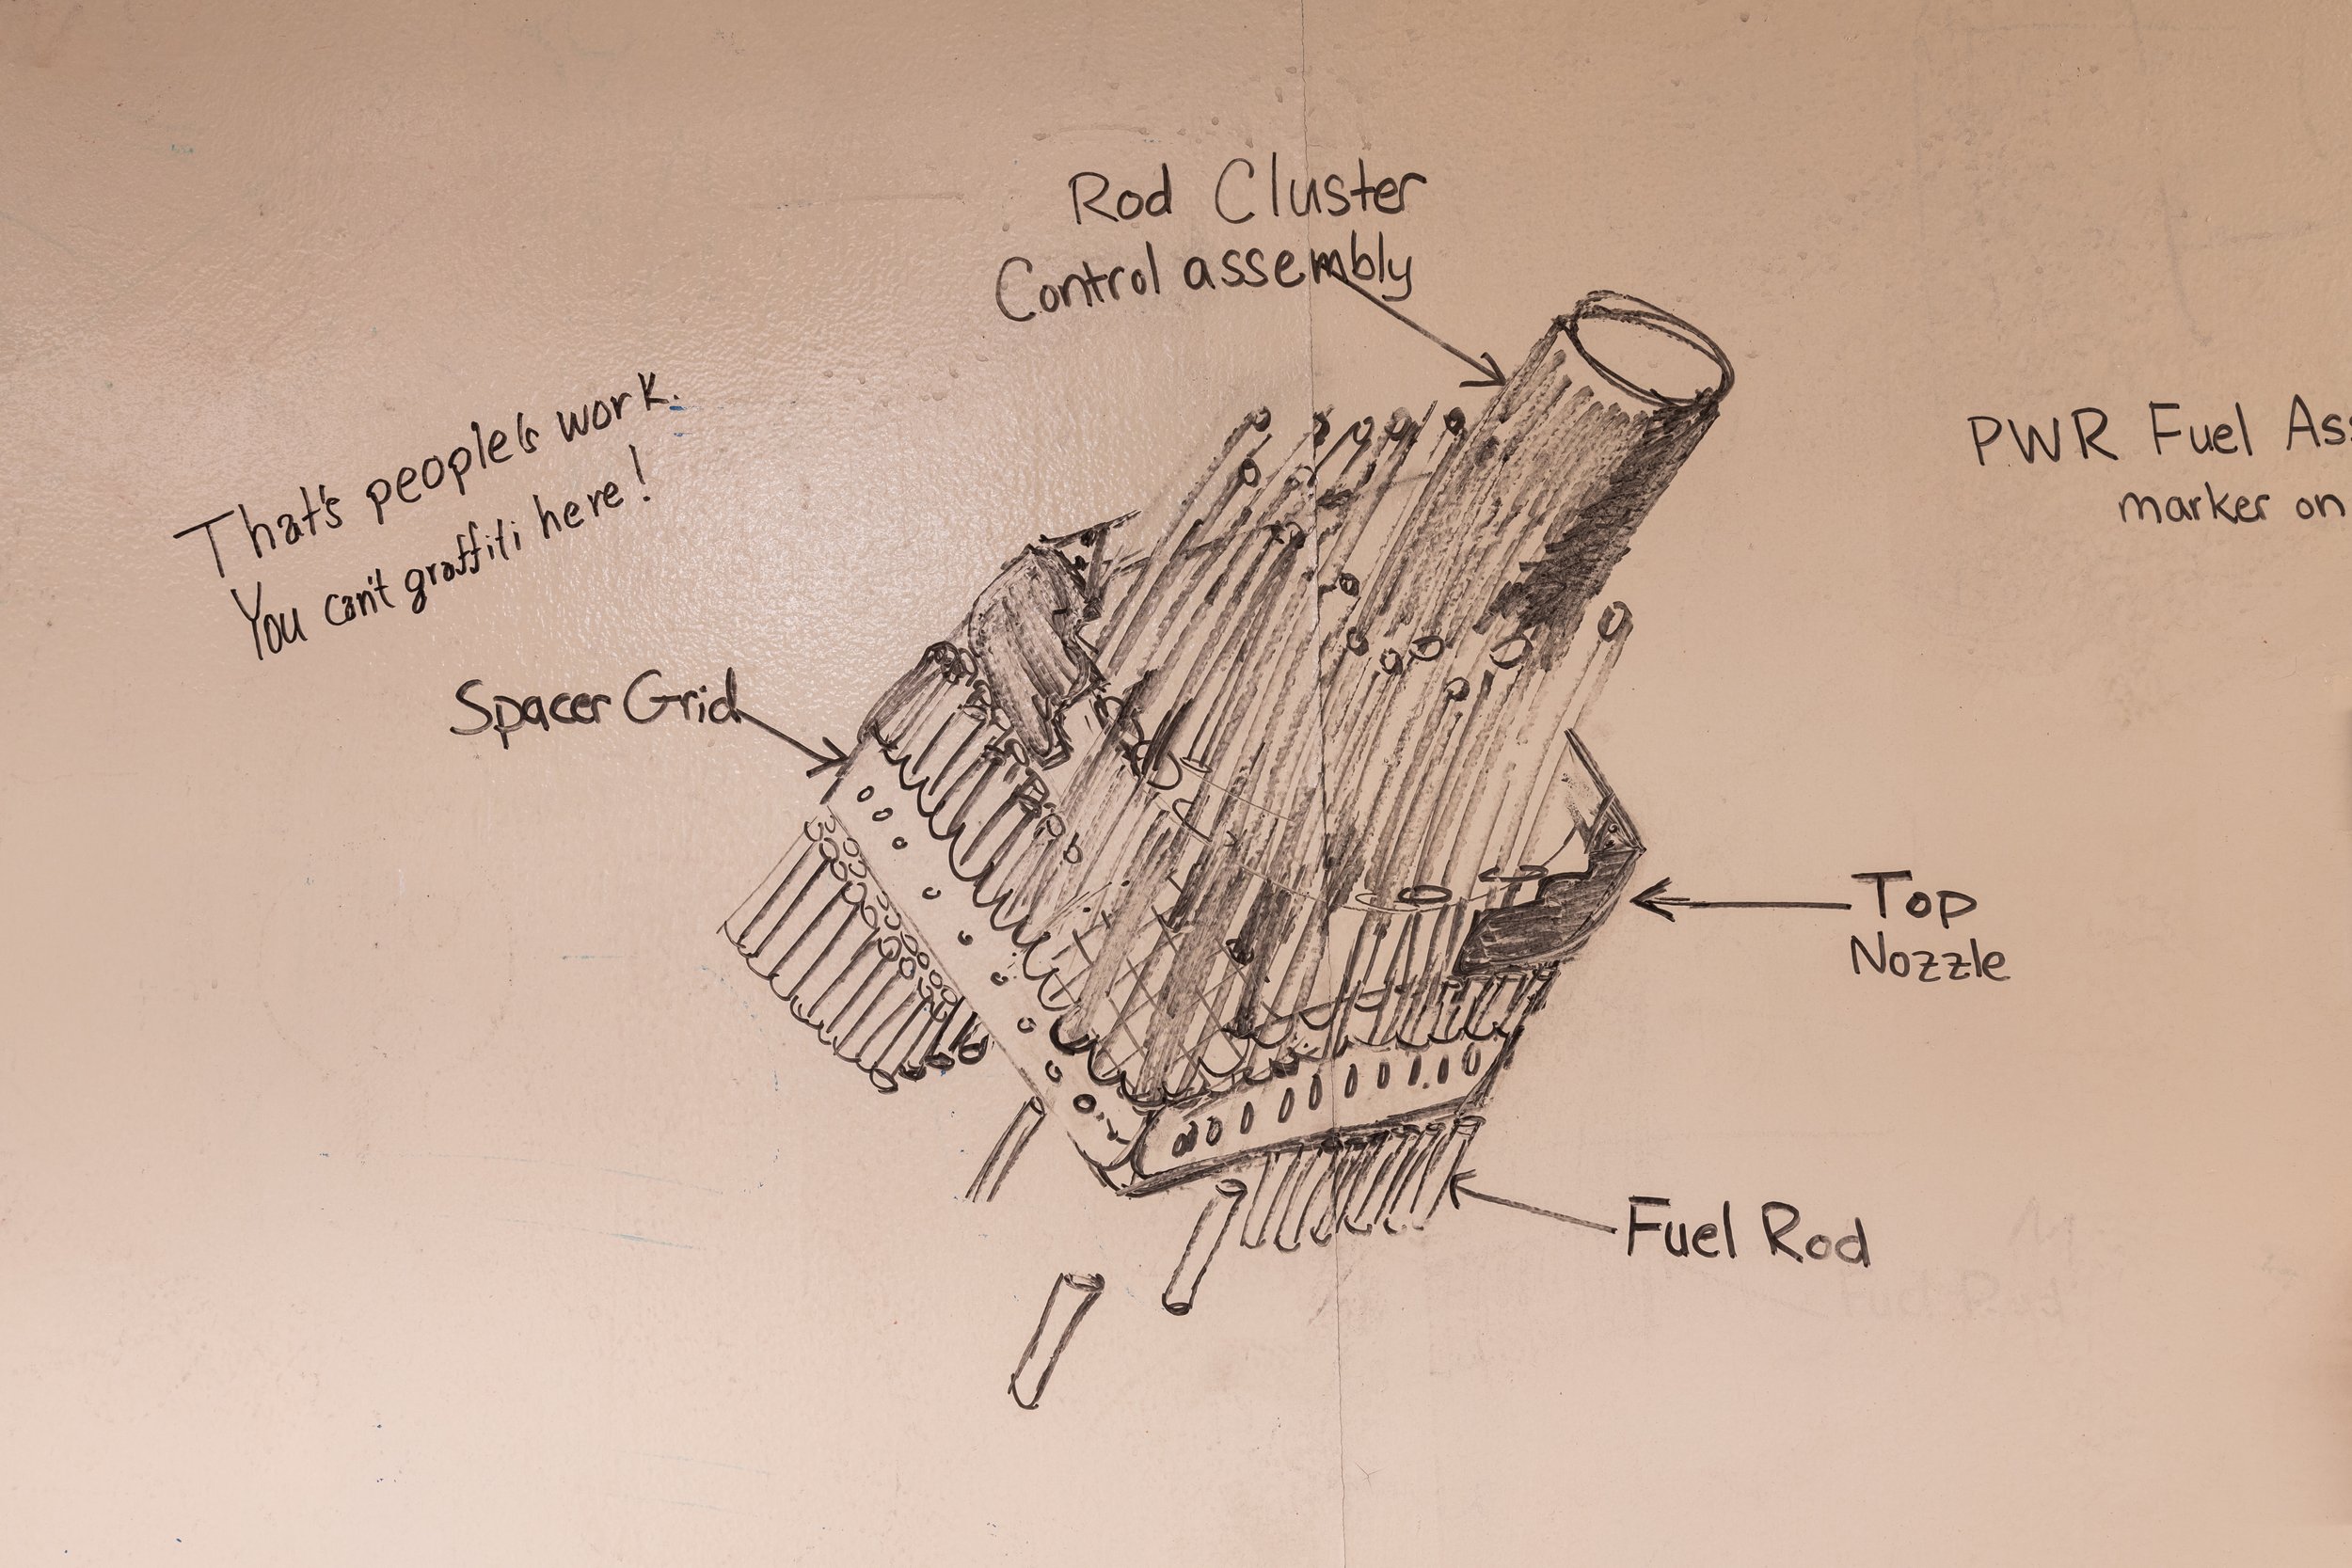 Rod Cluster
Control assembly
That's people's work.
You can't graffiti here!
PWR Fuel Ass
marker on
Spacer Grid
Top
Nozzle
Fuel Rod